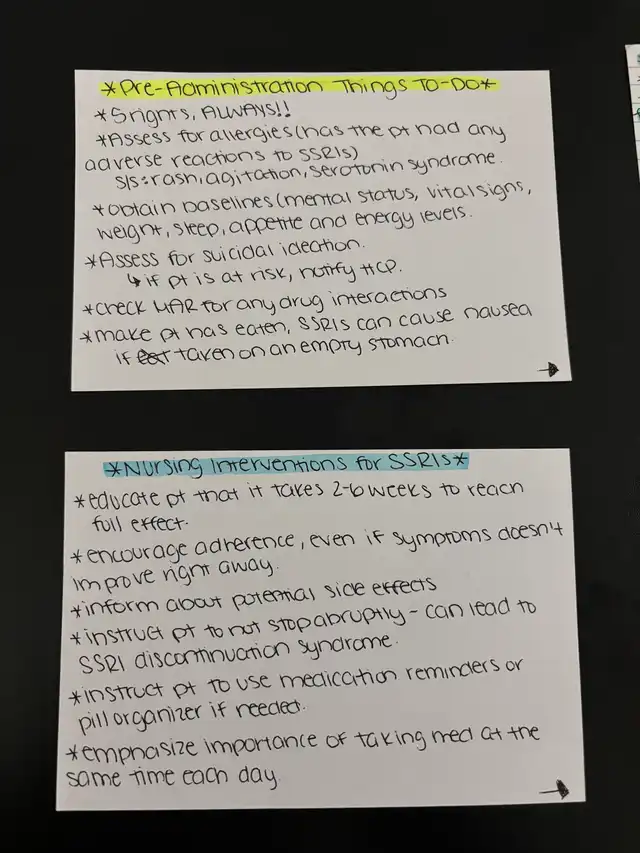 *Pre-Administration Things To-Do*
*5 rights, ALWAYS!!
*Assess for allergies (has the pt had any
adverse reactions to SSRIs)
S/s: rash, agitation, serotonin syndrome.
*obtain baselines (mental status, vital signs,
weight, sleep, appetite and energy levels.
*Assess for suicidal ideation.
↳ if pt is at risk, notify HCP.
*check MAR for any drug interactions
*make pt has eaten, SSRIs can cause nausea
if taken on an empty stomach.
→
*Nursing Interventions for SSRIs*
*educate pt that it takes 2-6 weeks to reach
full effect.
*encourage adherence, even if symptoms doesn't
improve right away.
*inform about potential side effects
*instruct pt to not stop abruptly - can lead to
SSRI discontinuation syndrome.
*instruct pt to use medication reminders or
pill organizer if needed.
*emphasize importance of taking med at the
same time each day.
→